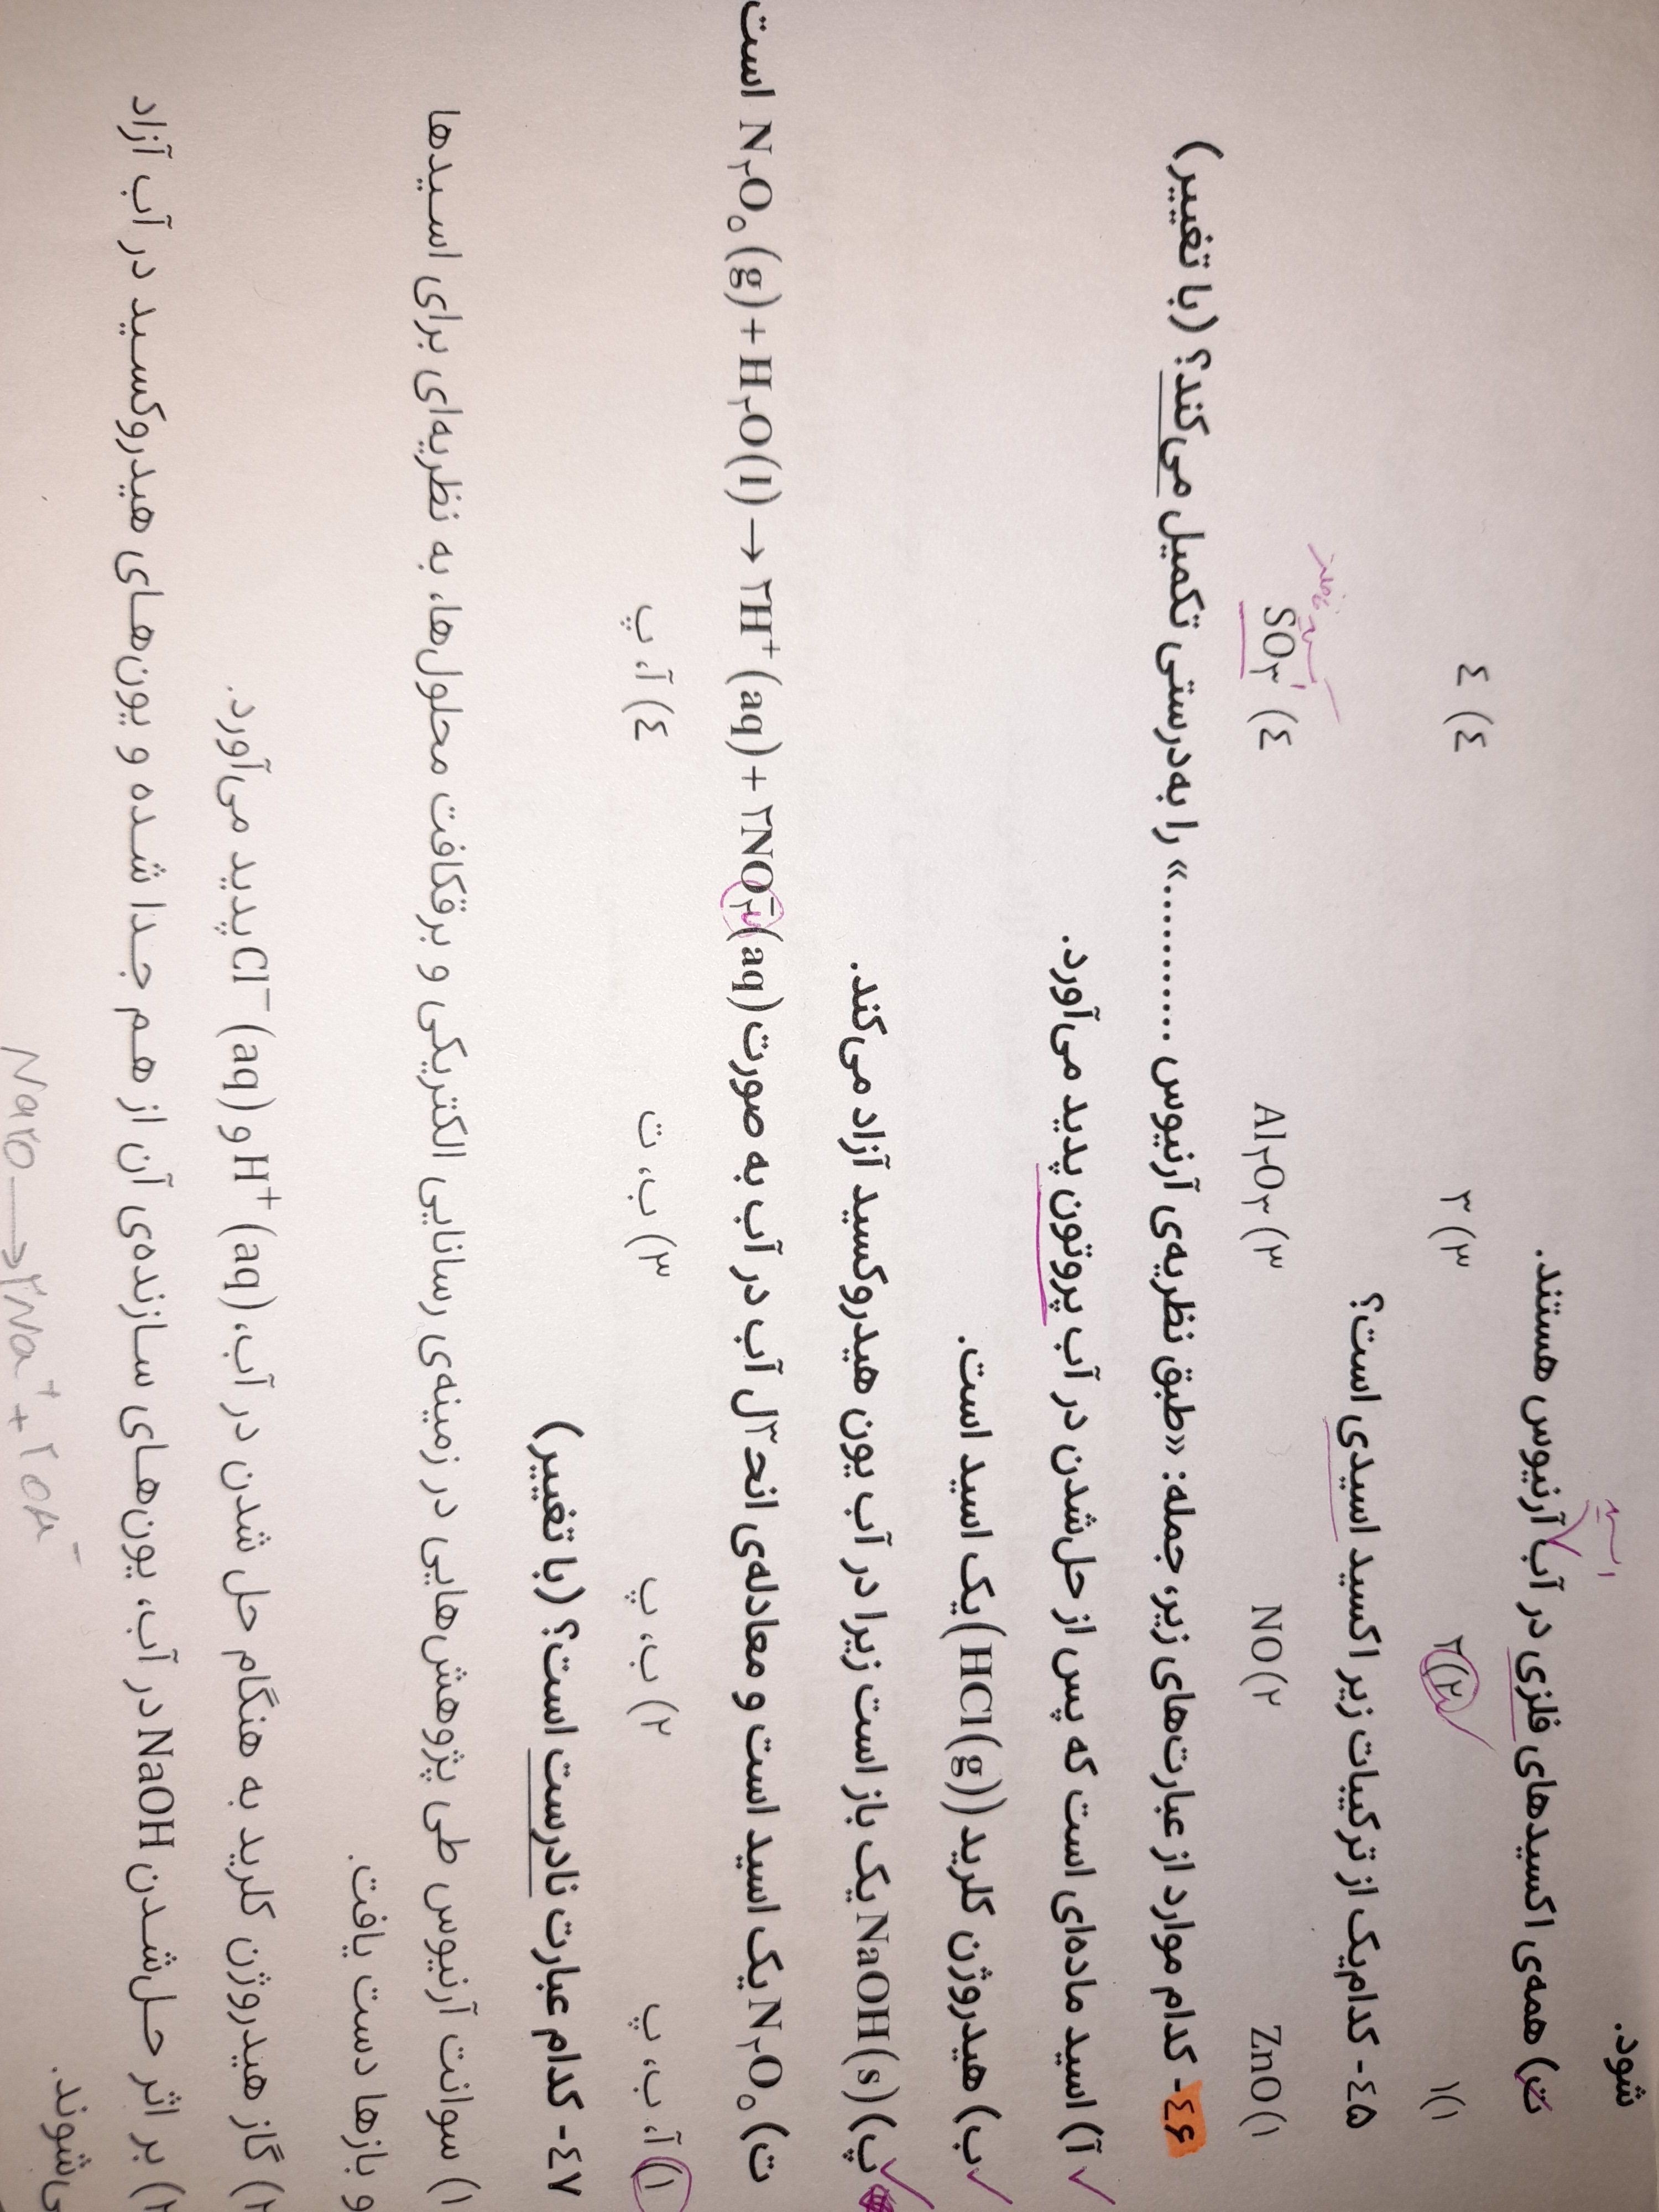 شود.
ت) همه‌ی اکسیدهای فلزی در آب آرنیوس هستند.
اسید
۱) ۱
۲) ۲
۳) ۳
٤) ٤
٤۵- کدام‌یک از ترکیبات زیر اکسید اسیدی است؟
۱) ZnO
۲) NO
۳) Al۲O۳
٤) SO۳
٤۶- کدام موارد از عبارت‌های زیر، جمله: «طبق نظریه‌ی آرنیوس ............» را به‌درستی تکمیل می‌کند؟ (با تغییر)
آ) اسید ماده‌ای است که پس از حل‌شدن در آب پروتون پدید می‌آورد.
ب) هیدروژن کلرید (HCl(g)) یک اسید است.
پ) NaOH(s) یک باز است زیرا در آب یون هیدروکسید آزاد می‌کند.
ت) N۲O۵ یک اسید است و معادله‌ی انح۳ل آب در آب به صورت N۲O۵(g)+H۲O(l)→۲H+(aq)+۲NO۲−(aq) است
۱) آ، ب، پ
۲) ب، پ
۳) ب، ت
٤) آ، پ
٤۷- کدام عبارت نادرست است؟ (با تغییر)
۱) سوانت آرنیوس طی پژوهش‌هایی در زمینه‌ی رسانایی الکتریکی و برقکافت محلول‌ها، به نظریه‌ای برای اسیدها
و بازها دست یافت.
۲) گاز هیدروژن کلرید به هنگام حل شدن در آب، H+(aq) و Cl−(aq) پدید می‌آورد.
بر اثر حل‌شدن NaOH در آب، یون‌های سازنده‌ی آن از هم جدا شده و یون‌های هیدروکسید در آب آزاد
می‌شوند.
Na۲O → ۲Na+ + ۲OH−